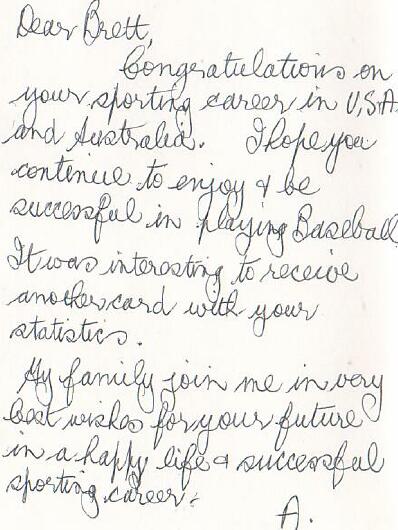 Dear Brett,
Congratulations on
your sporting career in U,S,A
and Australia. I hope you
continue to enjoy & be
successful in playing Baseball
It was interesting to receive
another card with your
statistics.
My family join me in very
best wishes for your future
in a happy life & successful
sporting career.
A.